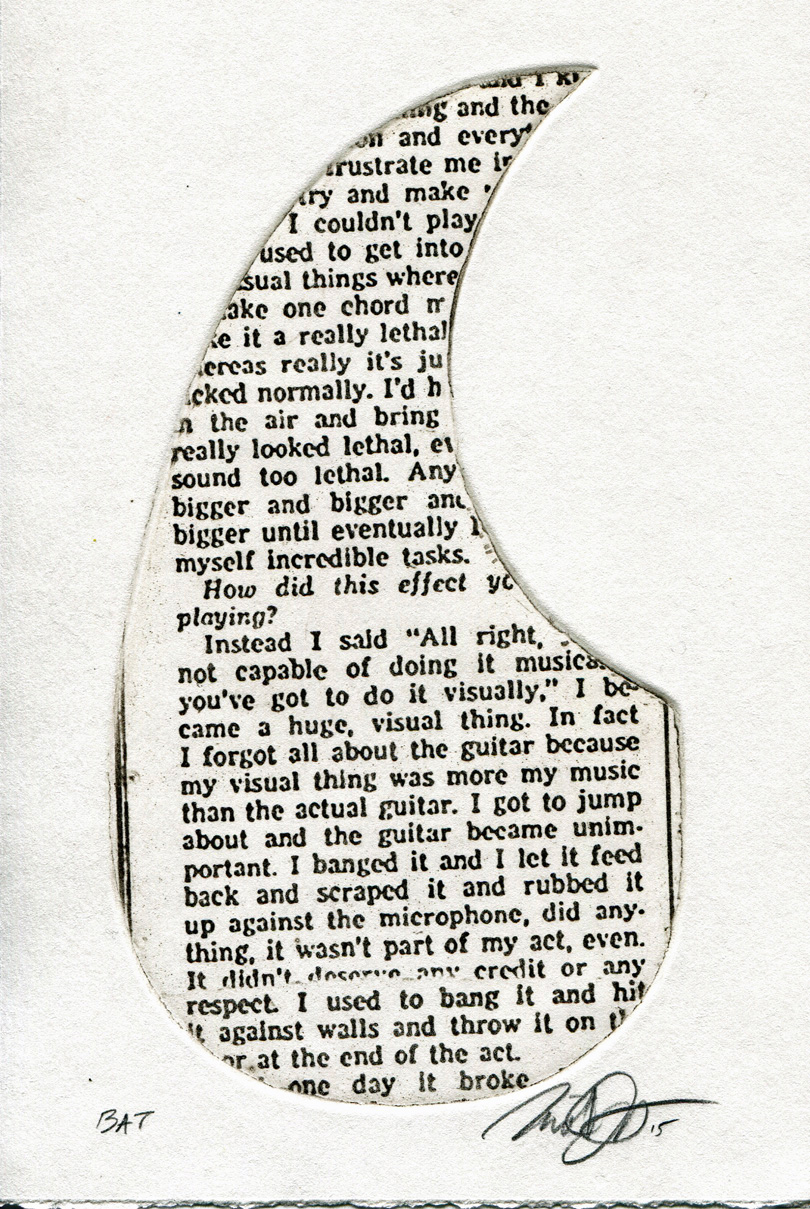 and I
and the
and every
frustrate me
try and make
I couldn't play
used to get into
sual things where
ake one chord
it a really lethal
ereas really it's ju
cked normally. I'd h
the air and bring
really looked lethal, ev
sound too lethal. Any
bigger and bigger and
bigger until eventually
myself incredible tasks.
How did this effect yo
playing?
Instead I said "All right,
not capable of doing it musica
you've got to do it visually," I be-
came a huge, visual thing. In fact
I forgot all about the guitar because
my visual thing was more my music
than the actual guitar. I got to jump
about and the guitar became unim-
portant. I banged it and I let it feed
back and scraped it and rubbed it
up against the microphone, did any-
thing, it wasn't part of my act, even.
It didn't deserve any credit or any
respect. I used to bang it and hit
it against walls and throw it on
or at the end of the act.
one day it broke
BAT
15